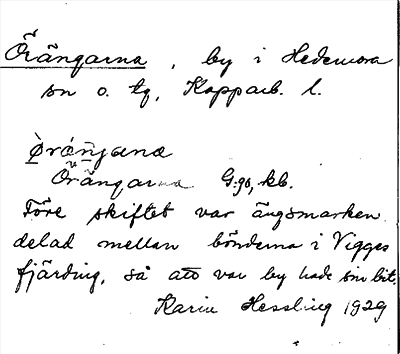 Örängarna, by i Hedemora
sn o. tg, Kopparb. l.
Örängarna G:go, kb.
Före skiftet var ängsmarken
delad mellan bönderna i Vigges
fjärding, så att var by hade sin bit.
Karin Hessling 1929